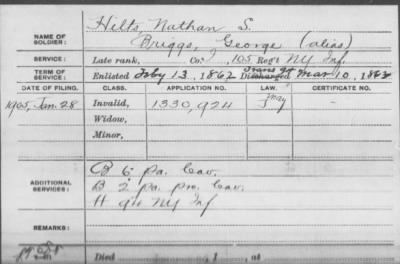 NAME OF SOLDIER: Hilts, Nathan S.
Briggs, George (alias)
SERVICE: Late rank, Co. 105 Reg't NY Inf.
TERM OF SERVICE: Enlisted Feby 13, 1862 Discharged Mar 10, 1863
DATE OF FILING. CLASS. APPLICATION NO. LAW. CERTIFICATE NO.
1905, Jan. 28 Invalid, 1330,924 J May –
Widow,
Minor,
ADDITIONAL SERVICES: 6 Pa. Cav.
B 2 Pa. Pro. Cav.
H NY Inf
REMARKS:
Died 1 , at